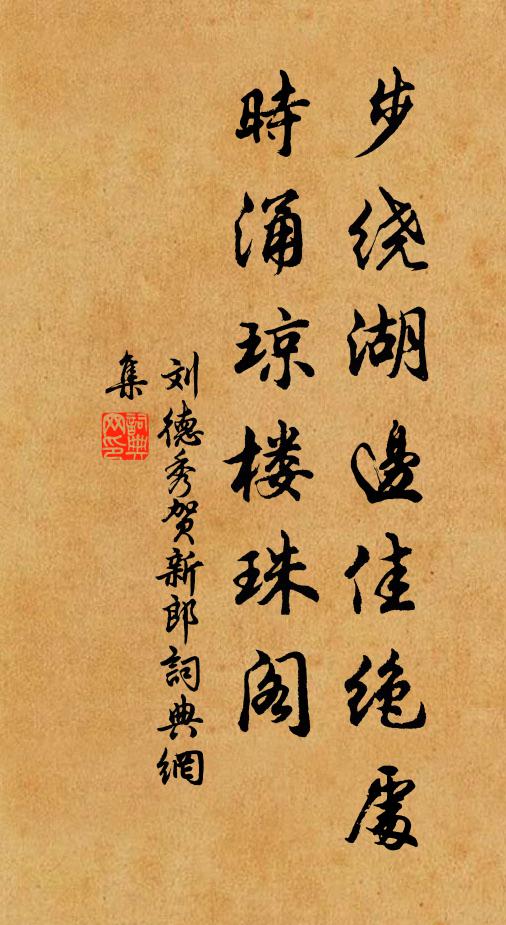 步绕湖邊佳绝處
時涌琼楼珠阁
刘德秀贺新郎詞典網
集
詞典
网印